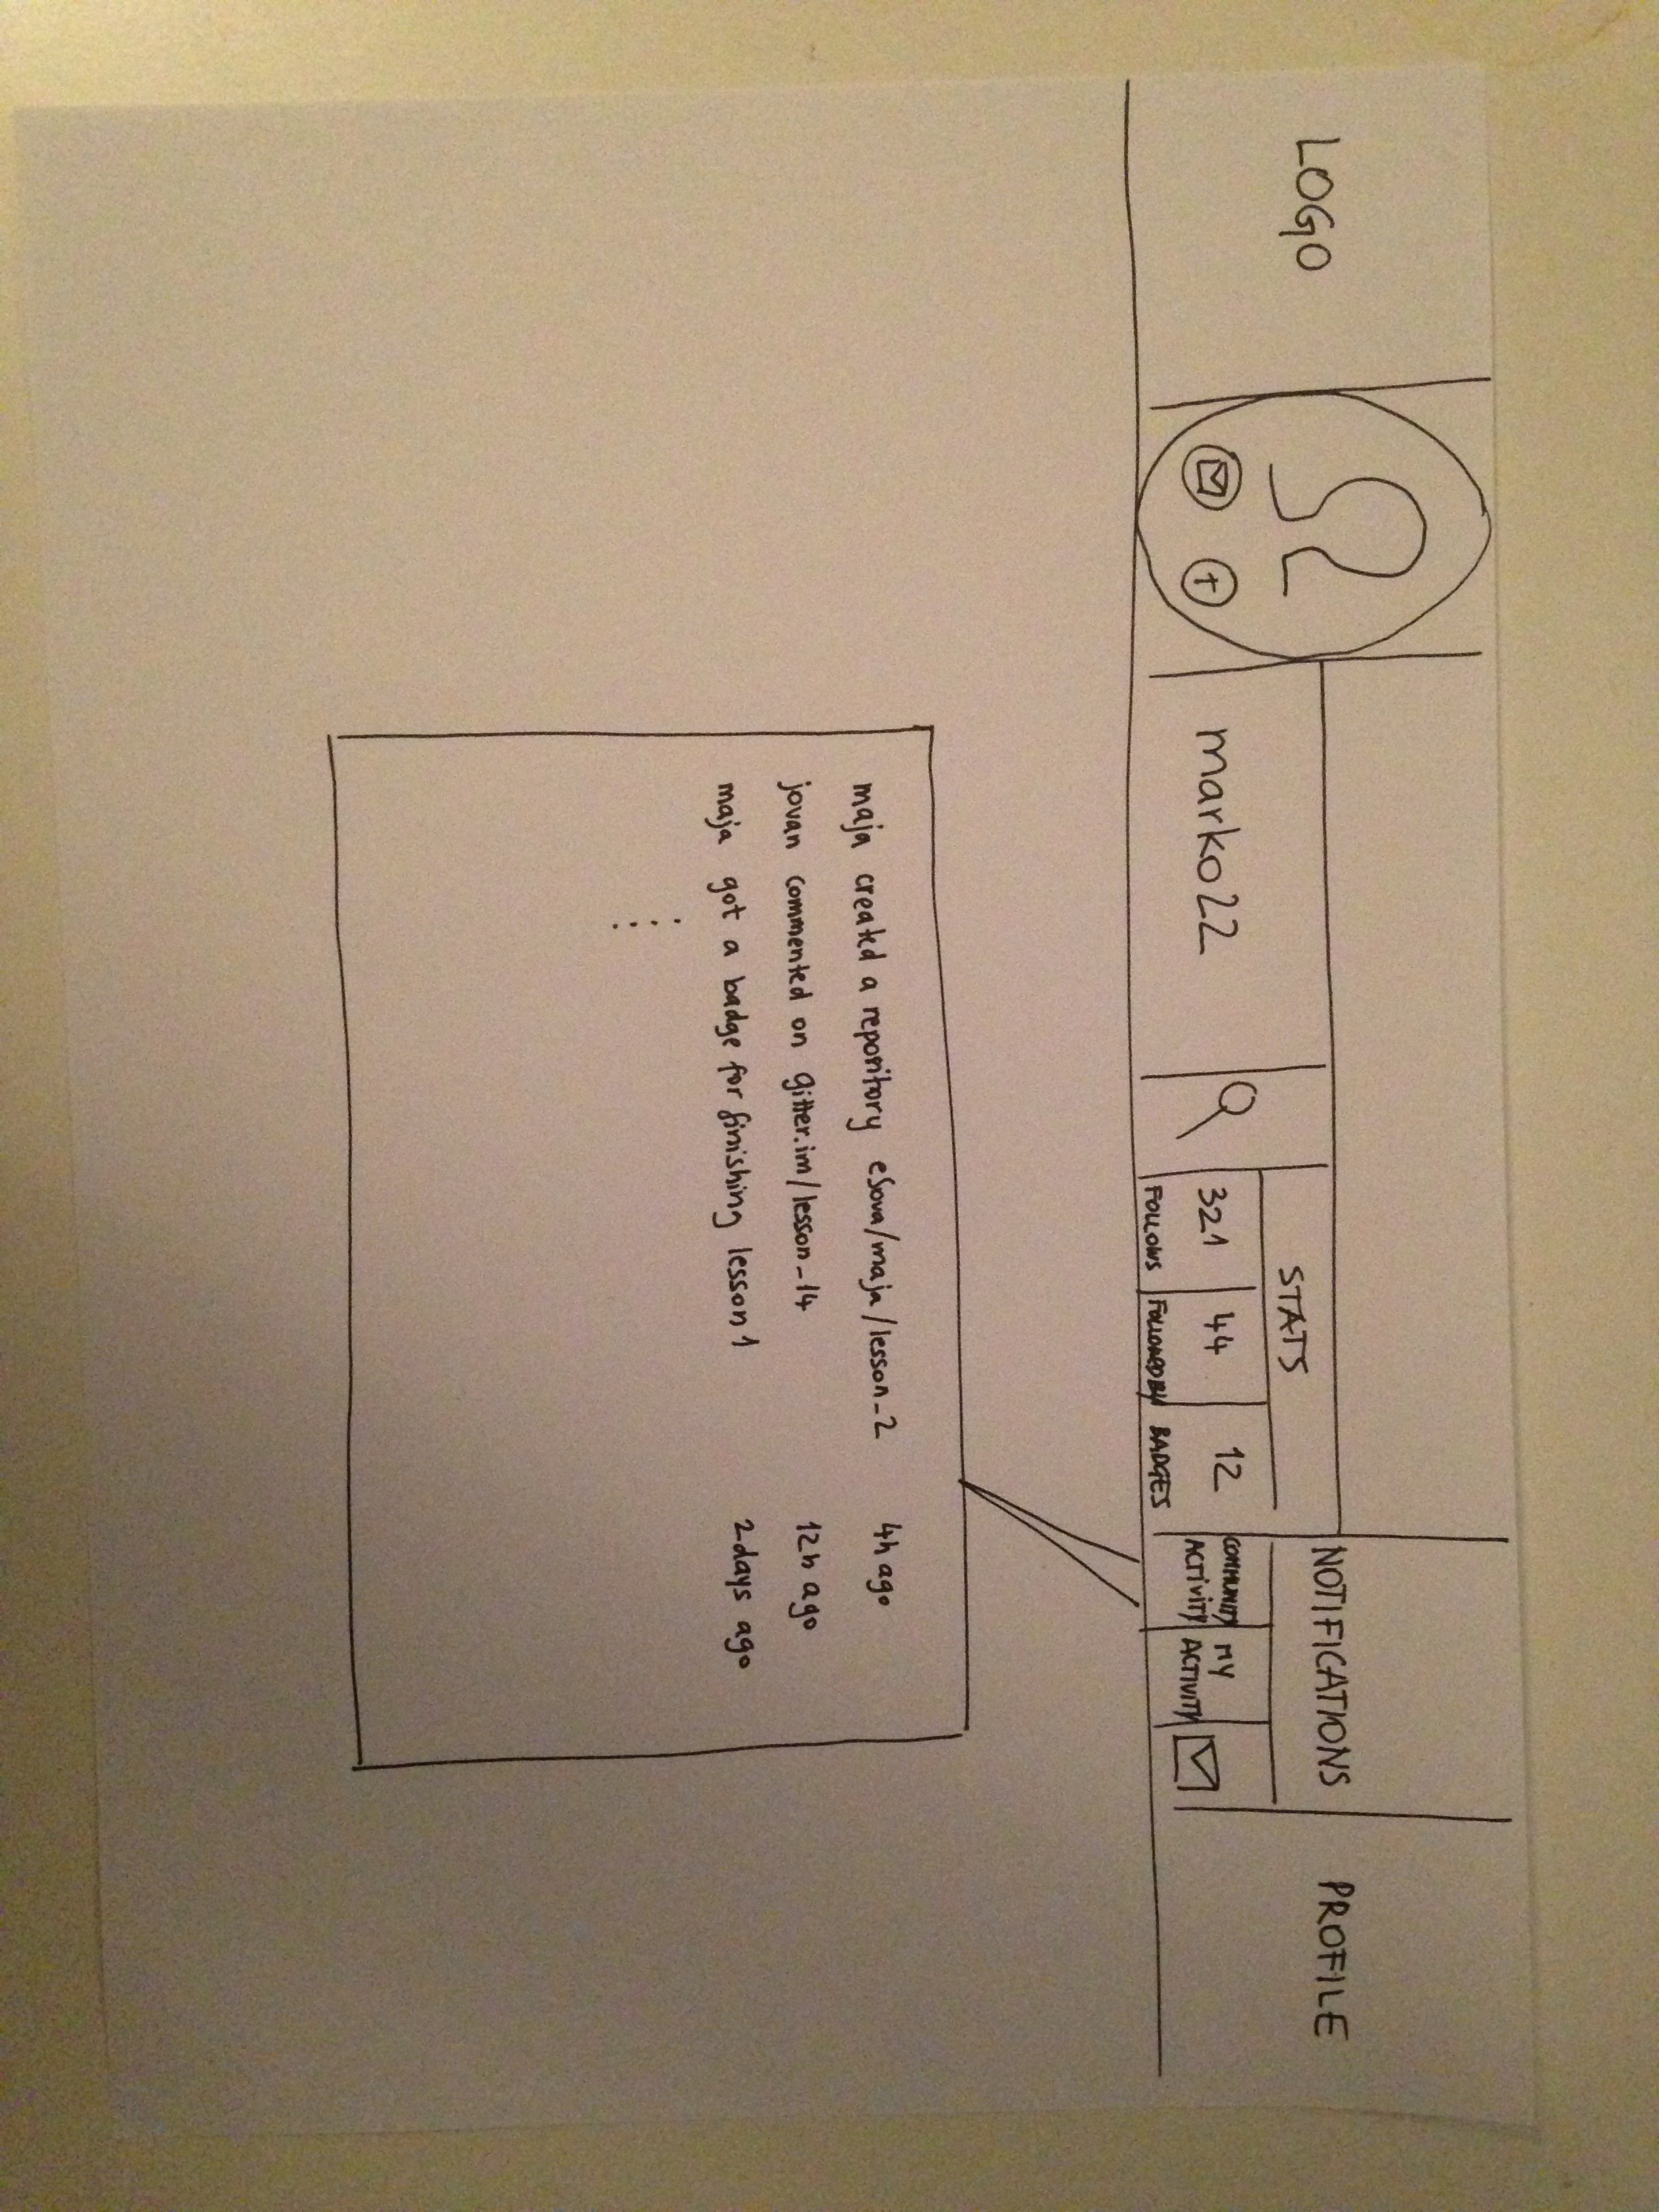 LOGO
marko22
STATS
321
44
12
FOLLOWS
FOLLOWED BY
BADGES
NOTIFICATIONS
COMMUNITY
ACTIVITY
MY
ACTIVITY
PROFILE
maja created a reponitory esova/maja/lesson_2 4h ago
jovan commented on gitter.im/lesson_14 12h ago
maja got a badge for finishing lesson 1 2days ago